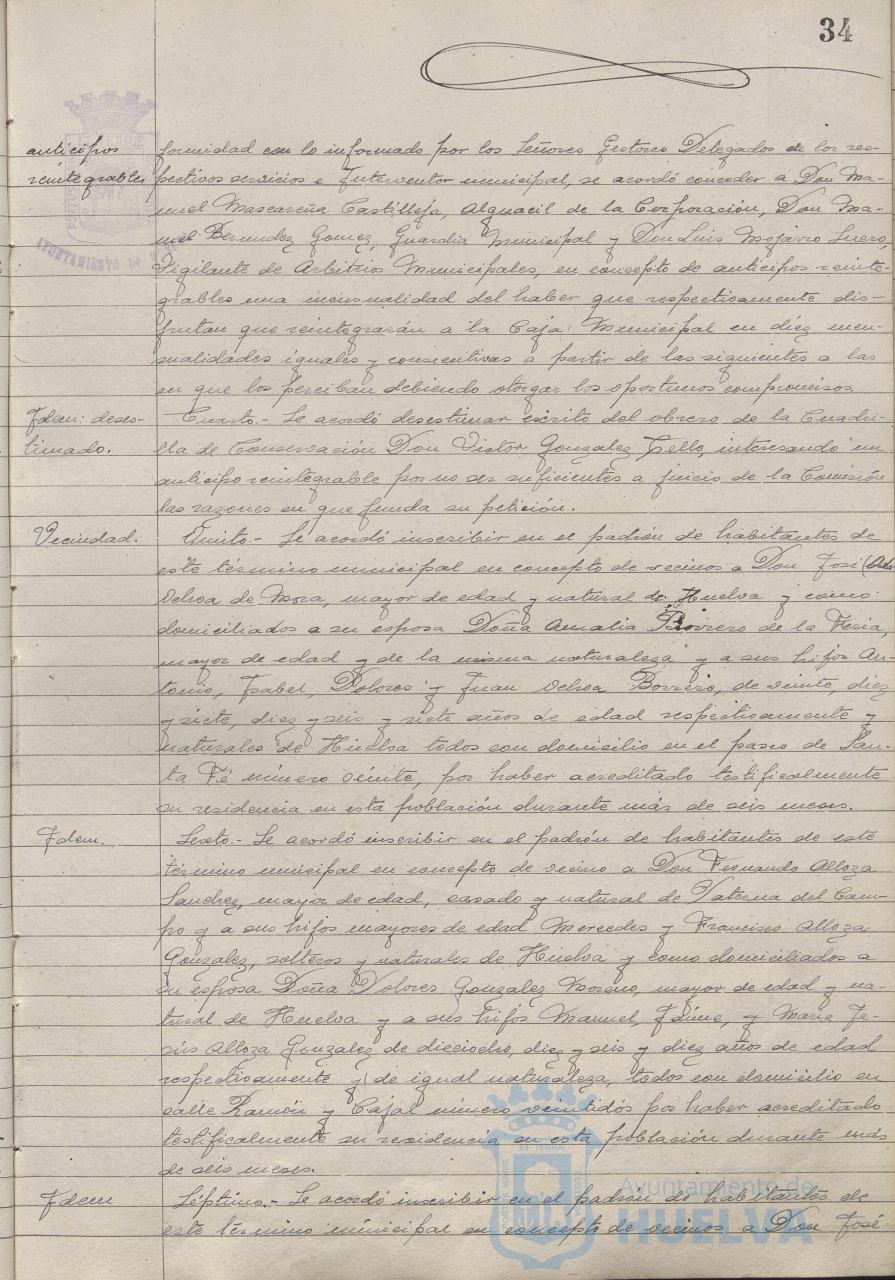 34
anticipos formidad con lo informado por los Señores Gestores Delegados de los res-
reintegrables pectivos servicios e Interventor municipal, se acordó conceder a Don Ma-
nuel Mascareña Castilleja, Alguacil de la Corporación, Don Ma-
nuel Bermudez Gomez, Guardia Municipal y Don Luis Mojarro Suero,
Vigilante de Arbitrios Municipales, en concepto de anticipos reinte-
grables una mensualidad del haber que respectivamente dis-
frutan que reintegrarán a la Caja Municipal en diez men-
sualidades iguales y consecutivas a partir de las siguientes a las
en que los perciban debiendo otorgar los oportunos compromisos.
Idem: deses- Cuarto.- Se acordó desestimar escrito del obrero de la Cuadri-
timado. lla de Conservación Don Victor Gonzalez Tello, interesando un
anticipo reintegrable por no ser suficientes a juicio de la Comisión
las razones en que funda su petición.
Vecindad. Quinto.- Se acordó inscribir en el padrón de habitantes de
este término municipal en concepto de vecinos a Don José
Ochoa de Mora, mayor de edad y natural de Huelva y como
domiciliados a su esposa Doña Amalia Borrero de la Feria,
mayor de edad y de la misma naturaleza y a sus hijos An-
tonio, Isabel, Dolores y Juan Ochoa Borrero, de veinte, diez
y siete, diez y seis y siete años de edad respectivamente y
naturales de Huelva todos con domicilio en el paseo de San-
ta Fé número veinte, por haber acreditado testificalmente
su residencia en esta población durante más de seis meses.
Idem. Sexto.- Se acordó inscribir en el padrón de habitantes de este
término municipal en concepto de vecino a Don Fernando Alloza
Sanchez, mayor de edad, casado y natural de Paterna del Cam-
po y a sus hijos mayores de edad Mercedes y Francisco Alloza
Gonzalez, solteros y naturales de Huelva y como domiciliados a
su esposa Doña Dolores Gonzalez Moreno, mayor de edad y na-
tural de Huelva y a sus hijos Manuel, Jaime, y María Je-
sús Alloza Gonzalez de dieciocho, diez y seis y diez años de edad
respectivamente y de igual naturaleza, todos con domicilio en
calle Ramón y Cajal número veintidós por haber acreditado
testificalmente su residencia en esta población durante más
de seis meses.
Idem Séptimo.- Se acordó inscribir en el padrón de habitantes de
este término municipal en concepto de vecinos a Don José
Ayuntamiento de
HUELVA